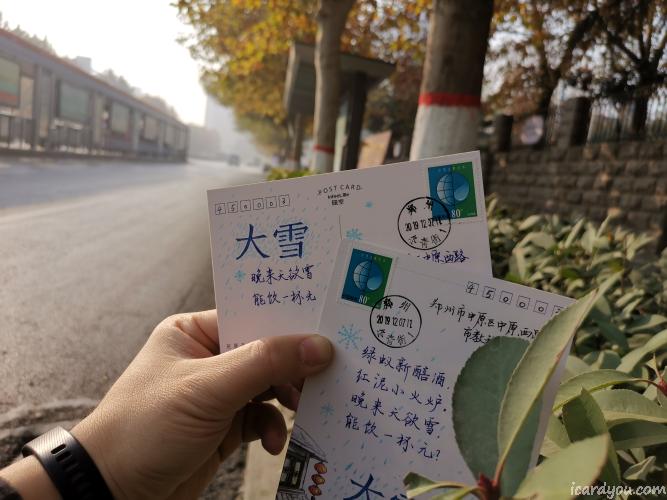 POST CARD
450003
80分
郑州
2019.12.07.12
中原西路
大雪
晚来天欲雪
能饮一杯无
45000
80分
郑州
2019.12.07.12
郑州市中原区中原西
市教
绿蚁新醅酒,
红泥小火炉,
晚来天欲雪,
能饮一杯无?
大
icardyou.com